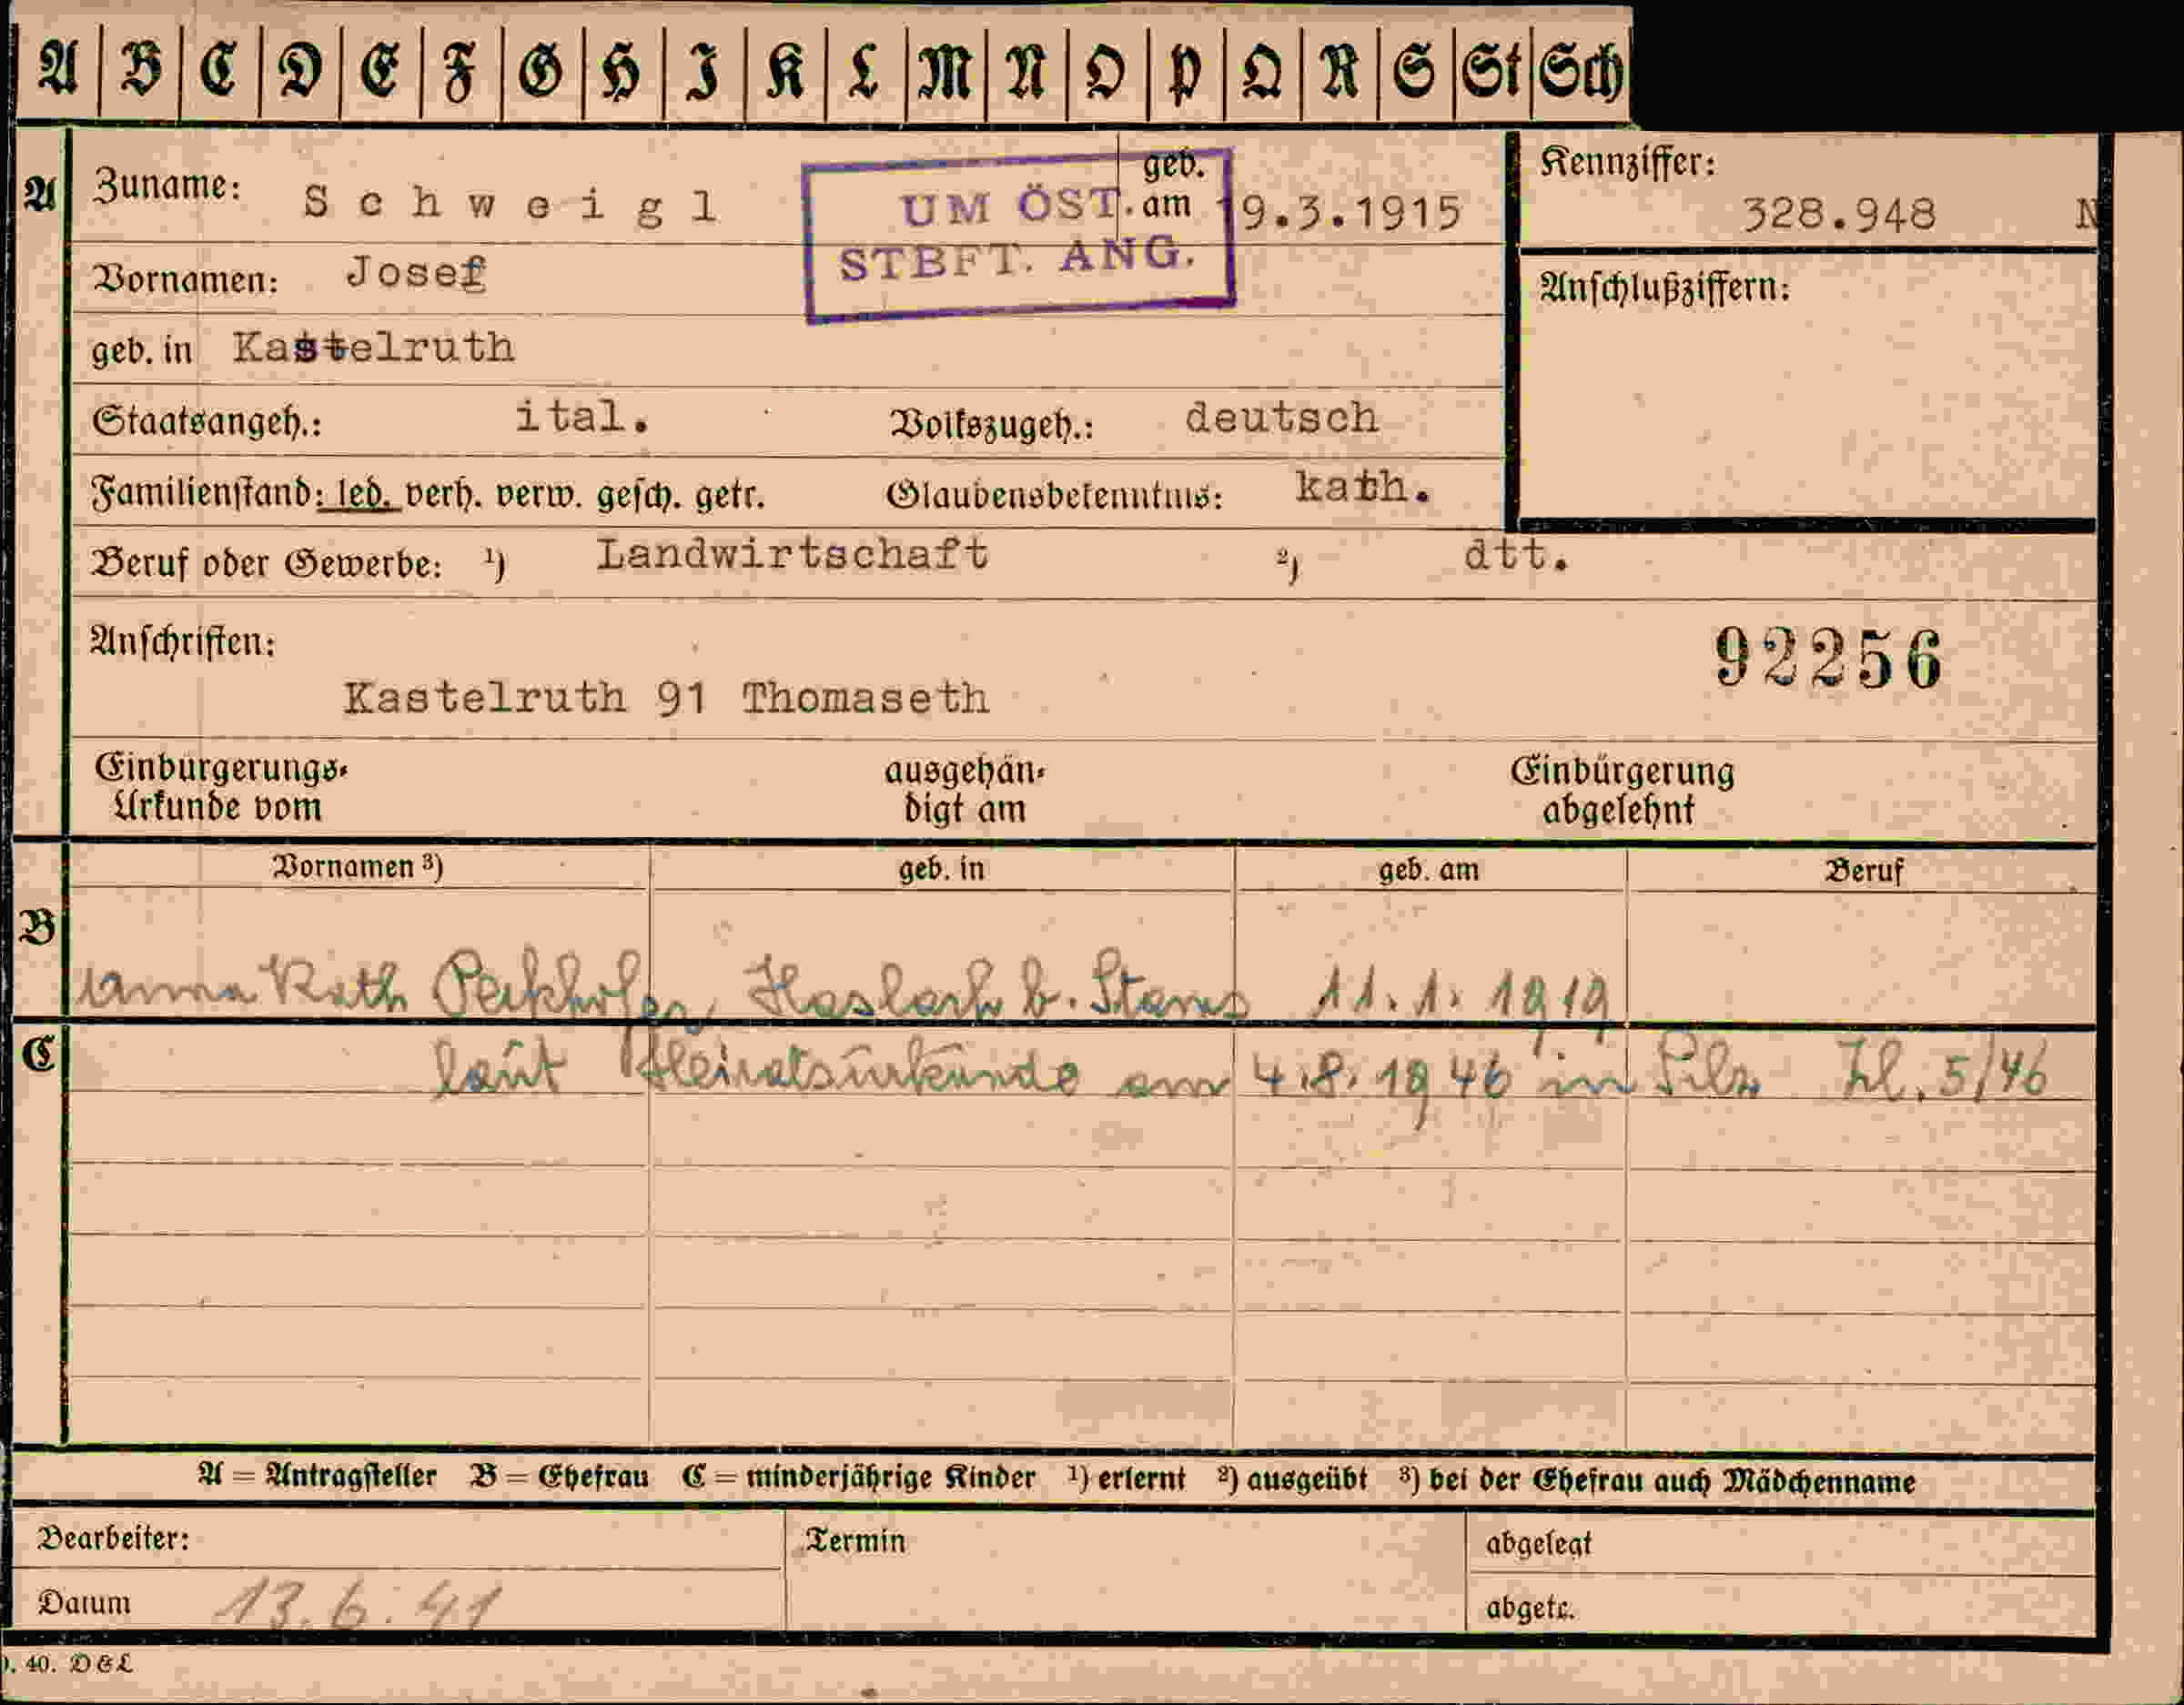 A B C D E F G H I K L M N O P Q R S St Sch
A Zuname: Schweigl geb. am 19.3.1915
UM ÖST.
STBFT. ANG.
Kennziffer: 328.948 N
Vornamen: Josef
Anschlußziffern:
geb. in Kastelruth
Staatsangeh.: ital. Volkszugeh.: deutsch
Familienstand: led. verh. verw. gesch. getr. Glaubensbekenntnis: kath.
Beruf oder Gewerbe: 1) Landwirtschaft 2) dtt.
Anschriften: 92256
Kastelruth 91 Thomaseth
Einbürgerungs- ausgehän- Einbürgerung
Urkunde vom digt am abgelehnt
Vornamen 3) geb. in geb. am Beruf
B
Anna Kath Haslach b. Stams 11.1.1919
C laut Heiratsurkunde am 4.8.1946 in Zl. 5/46
A = Antragsteller B = Ehefrau C = minderjährige Kinder 1) erlernt 2) ausgeübt 3) bei der Ehefrau auch Mädchenname
Bearbeiter: Termin abgelegt
Datum 13.6.41 abgetr.
). 40. D & L